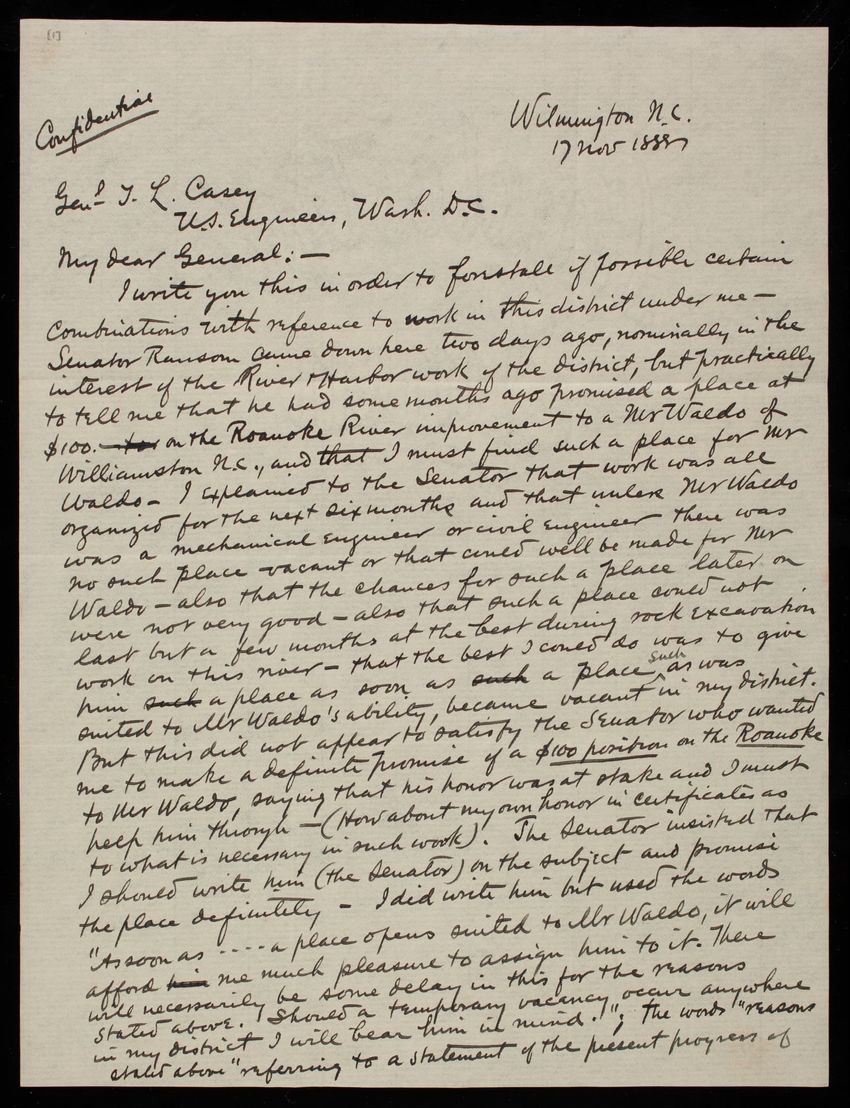 [1]
Confidential
Wilmington N.C.
17 Nov 1888
Genl T. L. Casey
U.S. Engineers, Wash. D.C.
My dear General:—
I write you this in order to forestall if possible certain
combinations with reference to work in this district under me—
Senator Ransom came down here two days ago, nominally in the
interest of the River & Harbor work of the district, but practically
to tell me that he had some months ago promised a place at
$100. on the Roanoke River improvement to a Mr Waldo of
Williamston N.C., and that I must find such a place for Mr
Waldo— I explained to the Senator that work was all
organized for the next six months and that unless Mr Waldo
was a mechanical Engineer or civil Engineer there was
no such place vacant or that could well be made for Mr
Waldo—also that the chances for such a place later on
were not very good—also that such a place could not
last but a few months at the best during rock excavation
work on this river—that the best I could do was to give
him such a place as soon as such a place, such as was
suited to Mr Waldo's ability, became vacant in my district.
But this did not appear to satisfy the Senator who wanted
me to make a definite promise of a $100 position on the Roanoke
to Mr Waldo, saying that his honor was at stake and I must
help him through—(How about my own honor in certificates as
to what is necessary in such work). The Senator insisted that
I should write him (the Senator) on the subject and promise
the place definitely— I did write him but used the words
"As soon as ---- a place opens suited to Mr Waldo, it will
afford him me much pleasure to assign him to it. There
will necessarily be some delay in this for the reasons
stated above. Should a temporary vacancy occur anywhere
in my district I will bear him in mind."; The words "reasons
stated above" referring to a statement of the present progress of